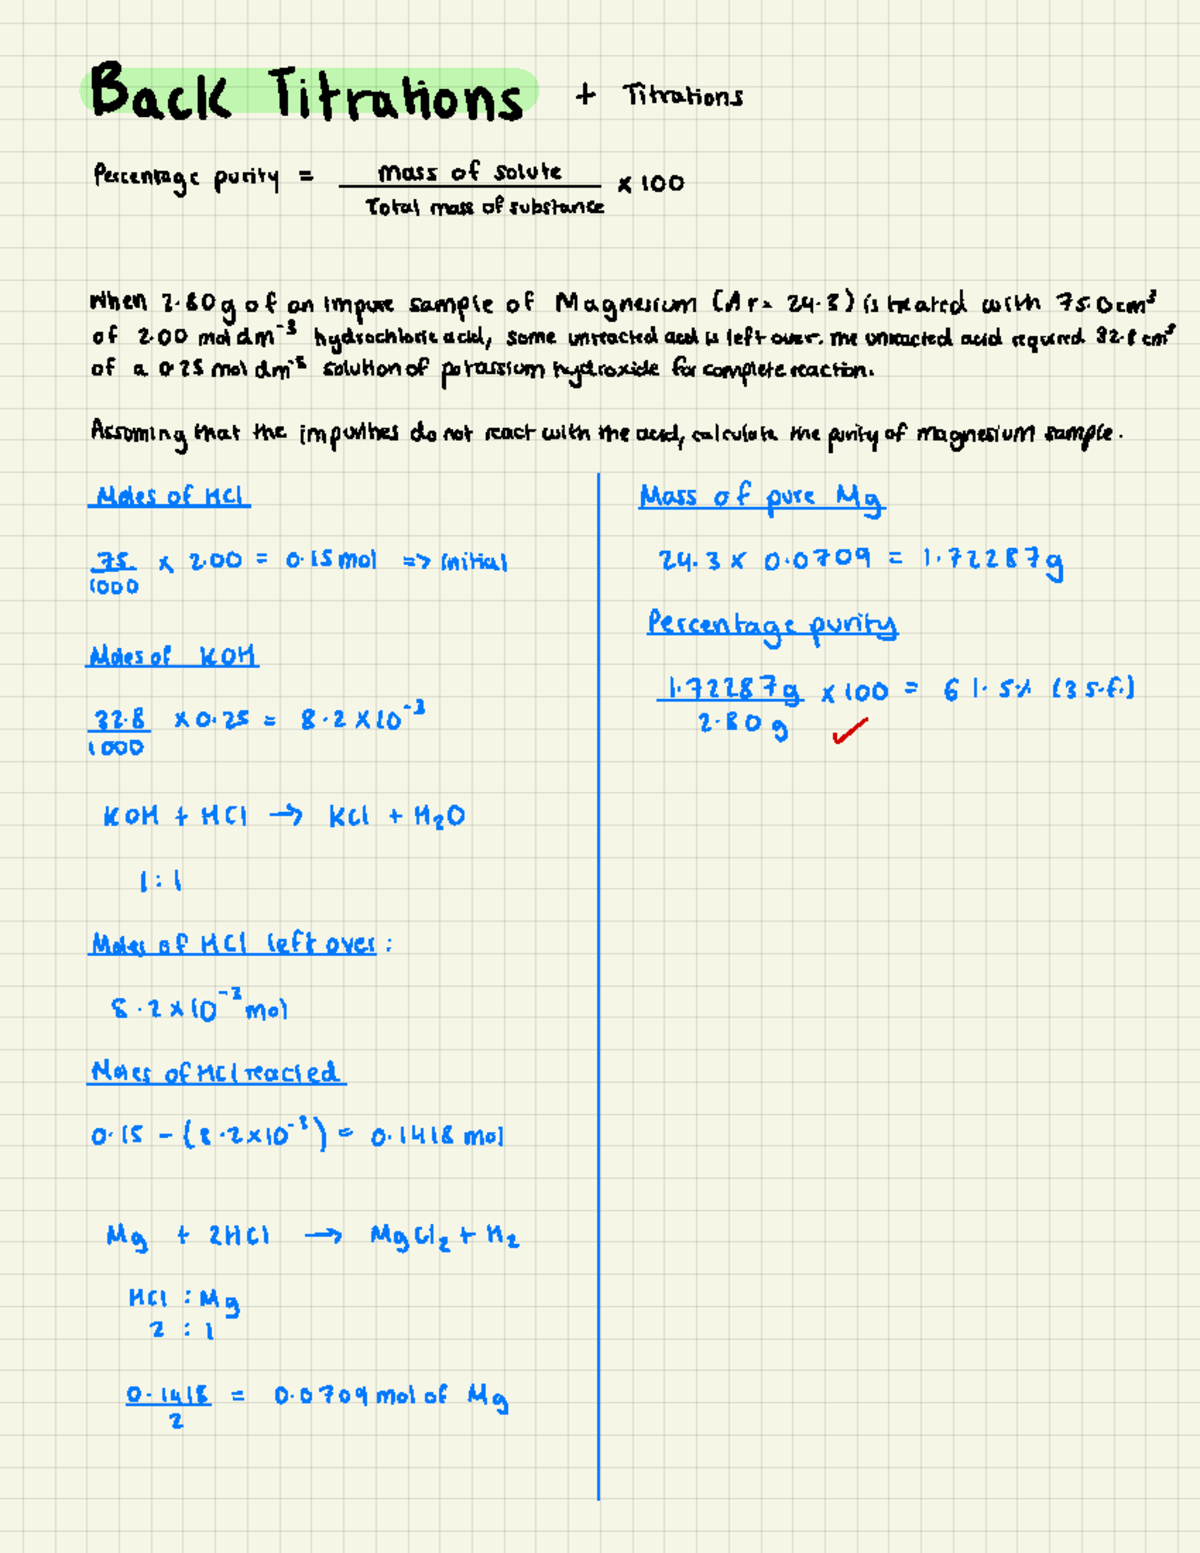 Back Titrations + Titrations
Percentage purity = mass of solute / Total mass of substance × 100
When 2.80g of an impure sample of Magnesium (Ar = 24.3) is treated with 75.0cm³
of 2.00 mol dm⁻³ hydrochloric acid, some unreacted acid is left over. The unreacted acid required 32.8 cm³
of a 0.25 mol dm⁻³ solution of potassium hydroxide for complete reaction.
Assuming that the impurities do not react with the acid, calculate the purity of magnesium sample.
Moles of HCl
75/1000 × 2.00 = 0.15 mol => initial
Moles of KOH
32.8/1000 × 0.25 = 8.2 × 10⁻³
KOH + HCl → KCl + H₂O
1 : 1
Moles of HCl left over :
8.2 × 10⁻³ mol
Moles of HCl reacted
0.15 - (8.2×10⁻³) = 0.1418 mol
Mg + 2HCl → MgCl₂ + H₂
HCl : Mg
2 : 1
0.1418/2 = 0.0709 mol of Mg
Mass of pure Mg
24.3 × 0.0709 = 1.72287g
Percentage purity
1.72287g/2.80g × 100 = 61.5% (3 s.f.)
✓